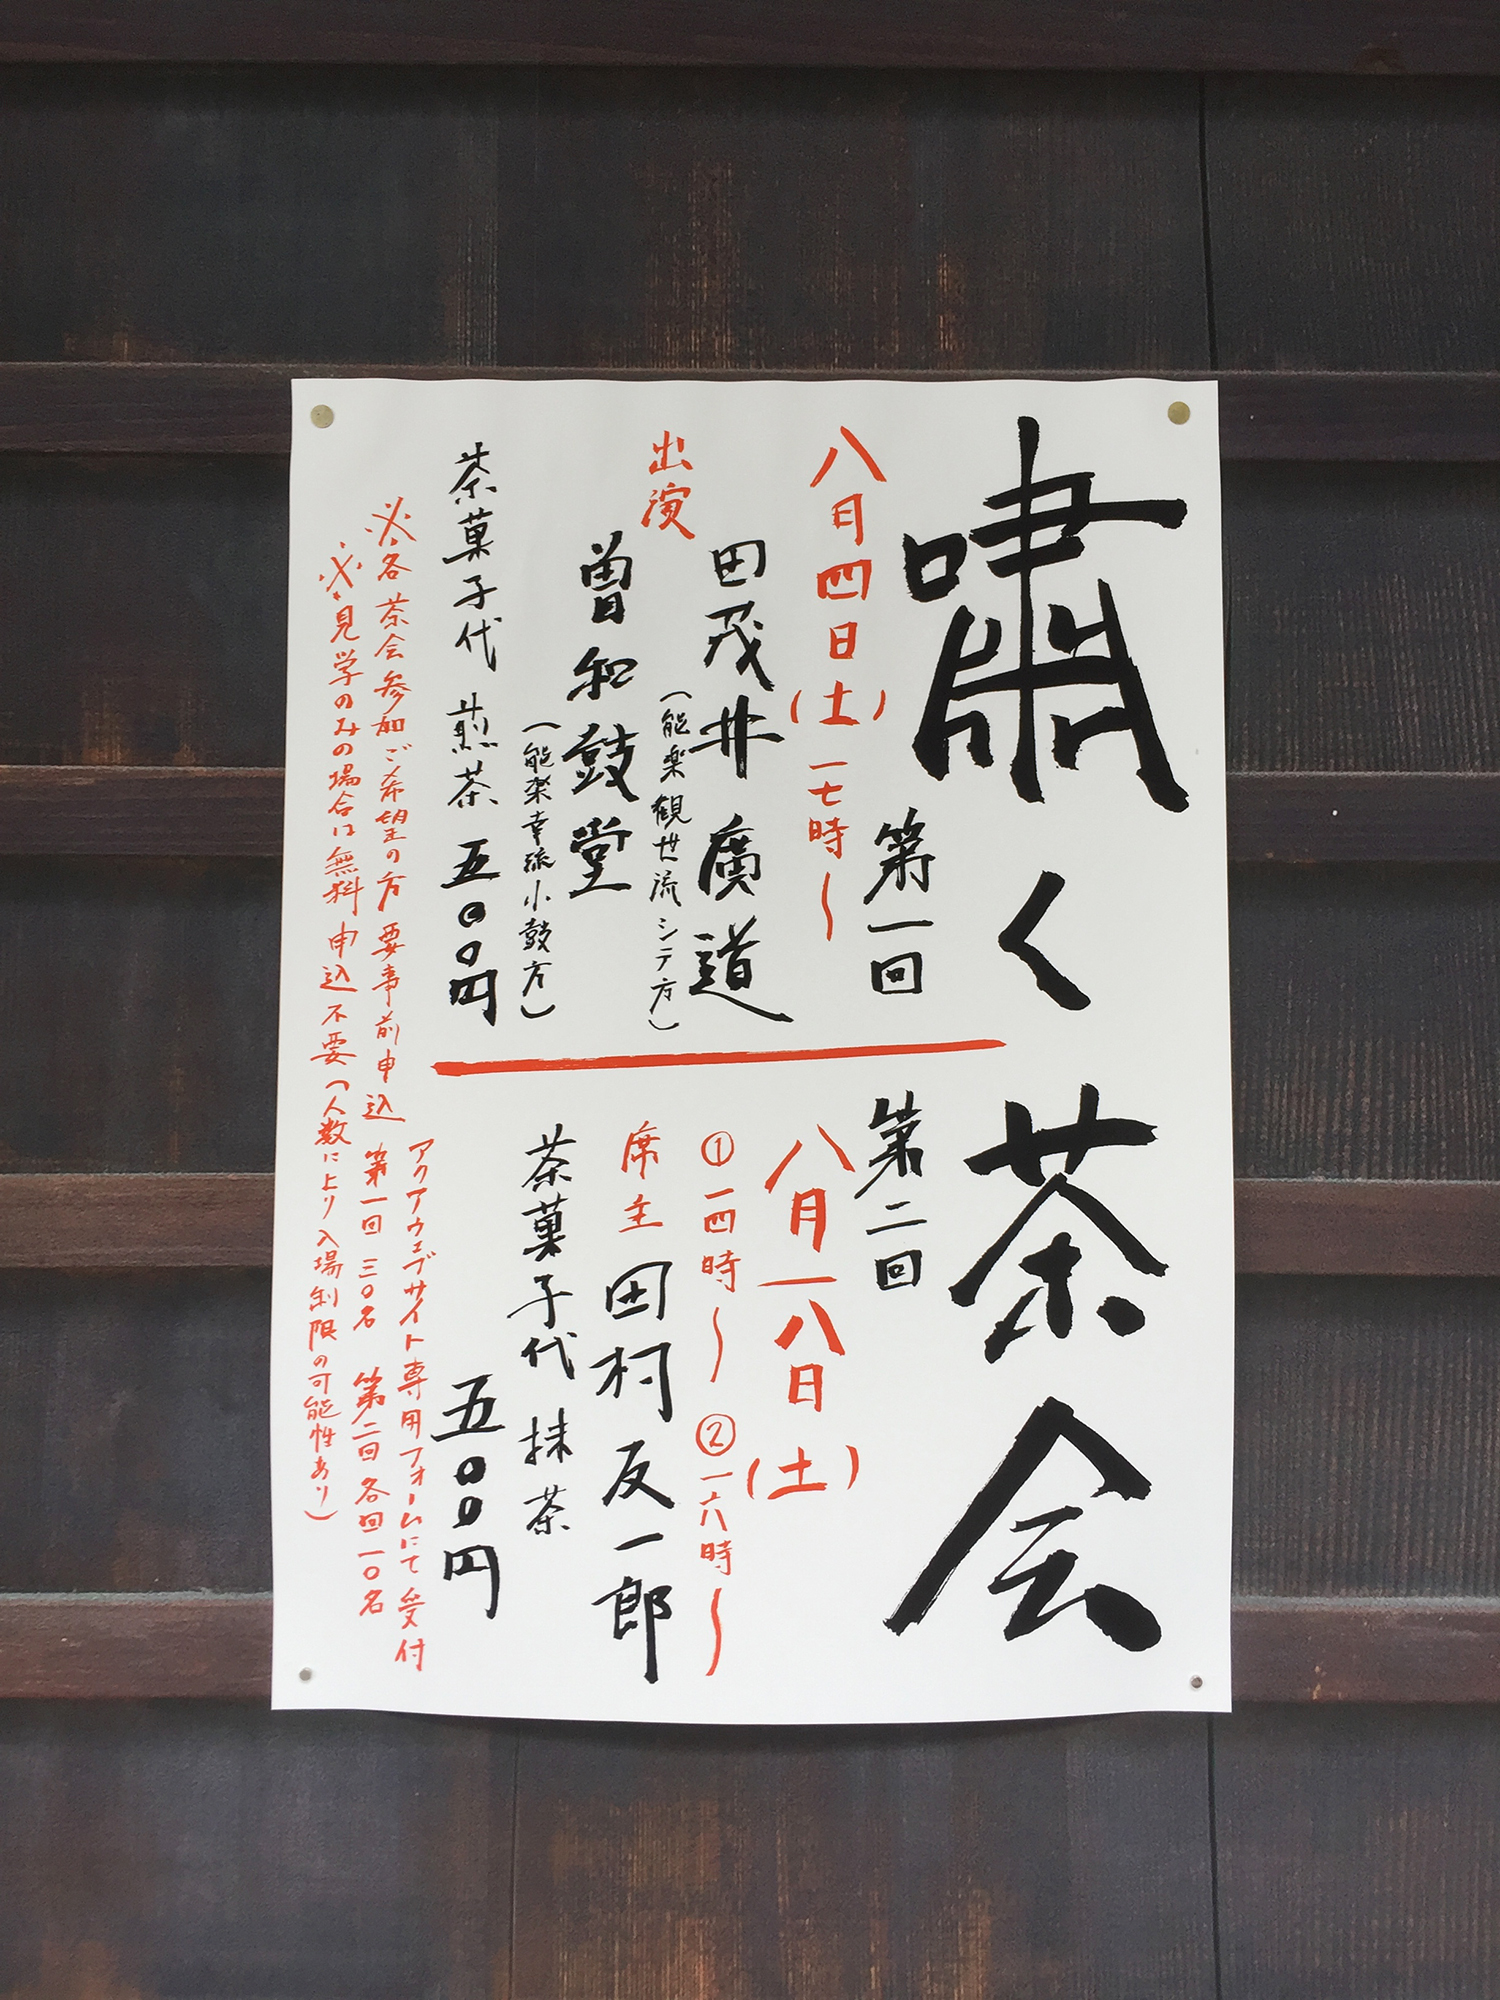 嘯く茶会
第一回
八月四日(土)一七時〜
出演
田茂井廣道
(能楽観世流シテ方)
曽和鼓堂
(能楽幸流小鼓方)
茶菓子代 煎茶 五〇〇円
第二回
八月一八日(土)
①一四時〜 ②一六時〜
席主 田村友一郎
茶菓子代 抹茶
五〇〇円
※各茶会参加ご希望の方 要事前申込
アクアウェブサイト専用フォームにて受付
第一回 三〇名 第二回 各回一〇名
※見学のみの場合は無料 申込不要(人数により入場制限の可能性あり)